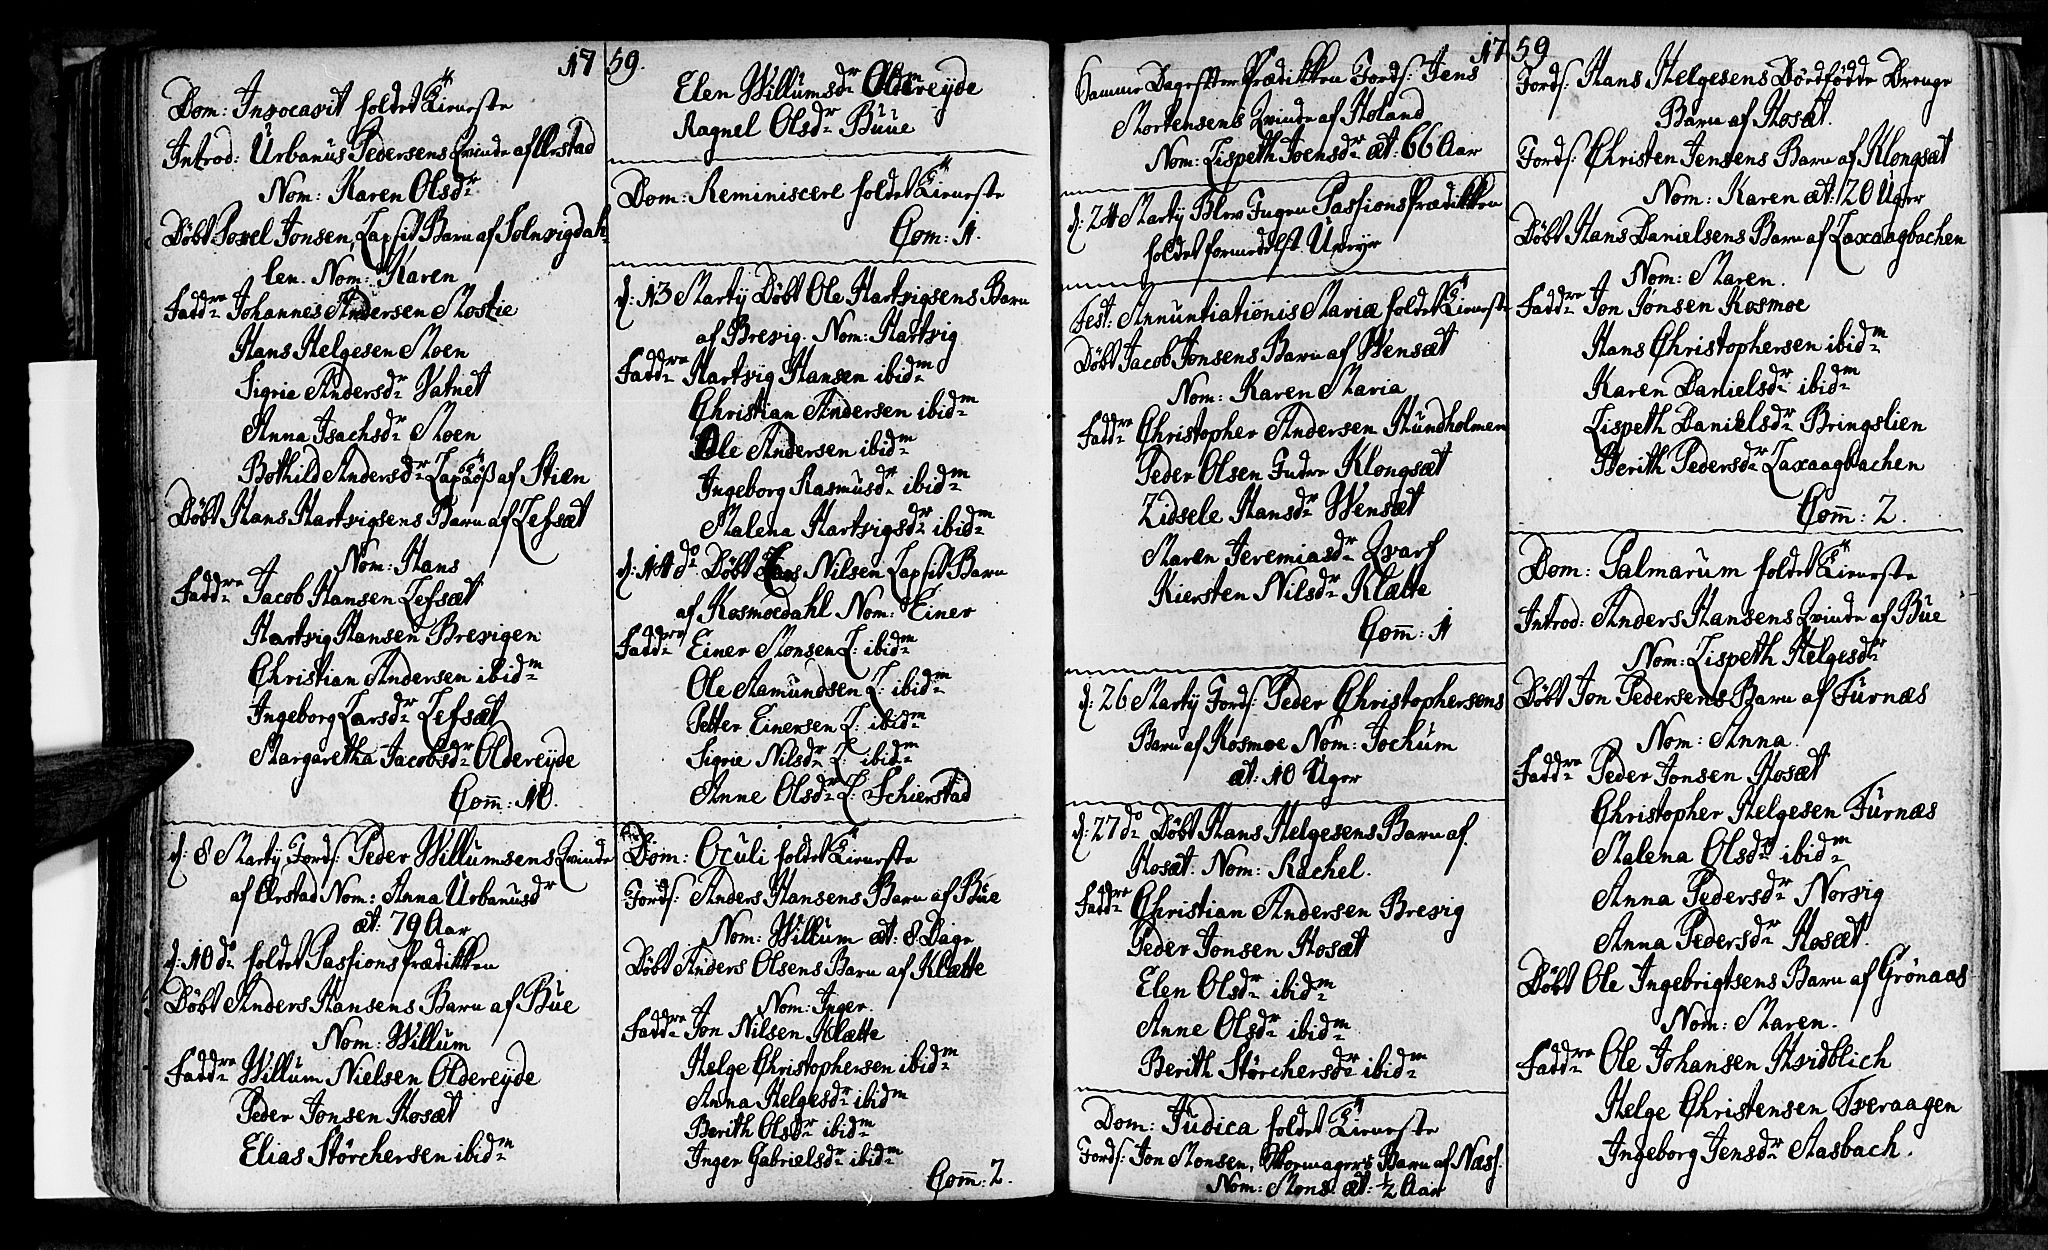 17 59.
Dom: Invocavit holdet Tieneste
Introd: Urbanus Pedersens Qvinde af Ørstad
Nom: Karen Olsdr
Døbt Povel Jonsen, Lapfit Barn af Solvigdah-
len. Nom: Karen
Faddre Johannes Andersen Mostie
Hans Helgesen Moen
Sigrie Andersdr Vatnet
Anna Isachsdr Moen
Bothild Andersdr af Stien
Døbt Hans Hartvigsens Barn af Lefsæt
Nom: Hans
Faddre Jacob Hansen Lefsæt
Hartvig Hansen Brevigen
Christian Andersen ibidm
Ingeborg Larsdr Lefsæt
Margaretha Jacobsdr Oldereyde
Com: 10.
d: 8 Martÿ Fords: Peder Willumsens Qvinde
af Ørstad Nom: Anna Urbanusdr
æt: 79 Aar
d: 10 do holdet Passions Prædikken
Døbt Anders Hansens Barn af Bue
Nom: Willum
Faddre Willum Nielsen Oldereyde
Peder Jonsen Hosæt
Elias Störchersen ibidm
Elen Willumsdr Oldereyde
Ragnel Olsdr Büüe
Dom: Reminiscere holdet Tieneste
Com: 1.
d: 13 Martÿ Døbt Ole Hartvigsens Barn
af Brevig. Nom: Hartvig
Faddre Hartvig Hansen ibidm
Christian Andersen ibidm
Ole Andersen ibidm
Ingeborg Rasmusdr ibidm
Malena Hartvigsdr ibidm
d: 14 do Døbt Nilsen Lapfit Barn
af Kosmoedahl Nom: Einer
Faddre Einer Monsen L: ibidm
Ole Aamundsen L: ibidm
Petter Einersen L: ibidm
Sigrie Nilsdr L: ibidm
Anne Olsdr L: Schierstad
Dom: Oculi holdet Tieneste
Fords: Anders Hansens Barn af Büe
Nom: Willum æt: 8 Dage
Døbt Anders Olsens Barn af Klætte
Nom: Inger.
Faddre Jon Nilsen Klætte
Helge Christophersen ibidm
Anna Helgesdr ibidm
Berith Olsdr ibidm
Inger Gabrielsdr ibidm
Com: 2.
17 59
Samme Dag efter Prædikken Fords: Jens
Mortensens Qvinde af Høland
Nom: Lispeth Joensdr æt: 66 Aar
d: 24 Martÿ Blev Ingen Passions Prædikken
holdet formedelst Uveyr
Fest: Annuntiationis Mariæ holdet Tieneste
Døbt Jacob Jonsens Barn af Wensæt
Nom: Karen Maria
Faddre Christopher Andersen Hundholmen
Peder Olsen Indre Klongsæt
Zidsele Hansdr Wensæt
Maren Jeremiasdr Qvarf
Kiersten Nilsdr Klætte
Com: 1
d: 26 Martÿ Fords: Peder Christophersens
Barn af Kosmoe Nom: Jochum
æt: 10 Uger
d: 27 do Døbt Hans Helgesens Barn af
Hosæt. Nom: Rachel.
Faddre Christian Andersen Brevig
Peder Jonsen Hosæt
Elen Olsdr ibidm
Anne Olsdr ibidm
Berith Störchersdr ibidm
Dom: Judica holdet Tieneste
Fords: Jon Monsen, Barn af Næss.
Nom: Mons. æt: 1/2 Aar
Fords: Hans Helgesens Dödfödde Drenge
Barn af Hosæt.
Fords: Christen Jensens Barn af Klongsæt
Nom: Karen æt: 20 Uger
Døbt Hans Danielsens Barn af Laxaagbachen
Nom: Maren.
Faddre Jon Jonsen Kosmoe
Hans Christophersen ibidm
Karen Danielsdr ibidm
Lispeth Danielsdr Bringslien
Berith Pedersdr Laxaagbachen
Com: 2.
Dom: Palmarum holdet Tieneste
Introd: Anders Hansens Qvinde af Büe
Nom: Lispeth Helgesdr
Døbt Jon Pedersens Barn af Furnæs
Nom: Anna.
Faddre Peder Jonsen Hosæt
Christopher Helgesen Furnæs
Malena Olsdr ibidm
Anna Pedersdr Norvig
Anna Pedersdr Hosæt.
Døbt Ole Ingebrigtsens Barn af Grönaas
Nom: Maren.
Faddre Ole Johansen Hvidblich
Helge Christensen Tveraagen
Ingeborg Jensdr Aasbach.